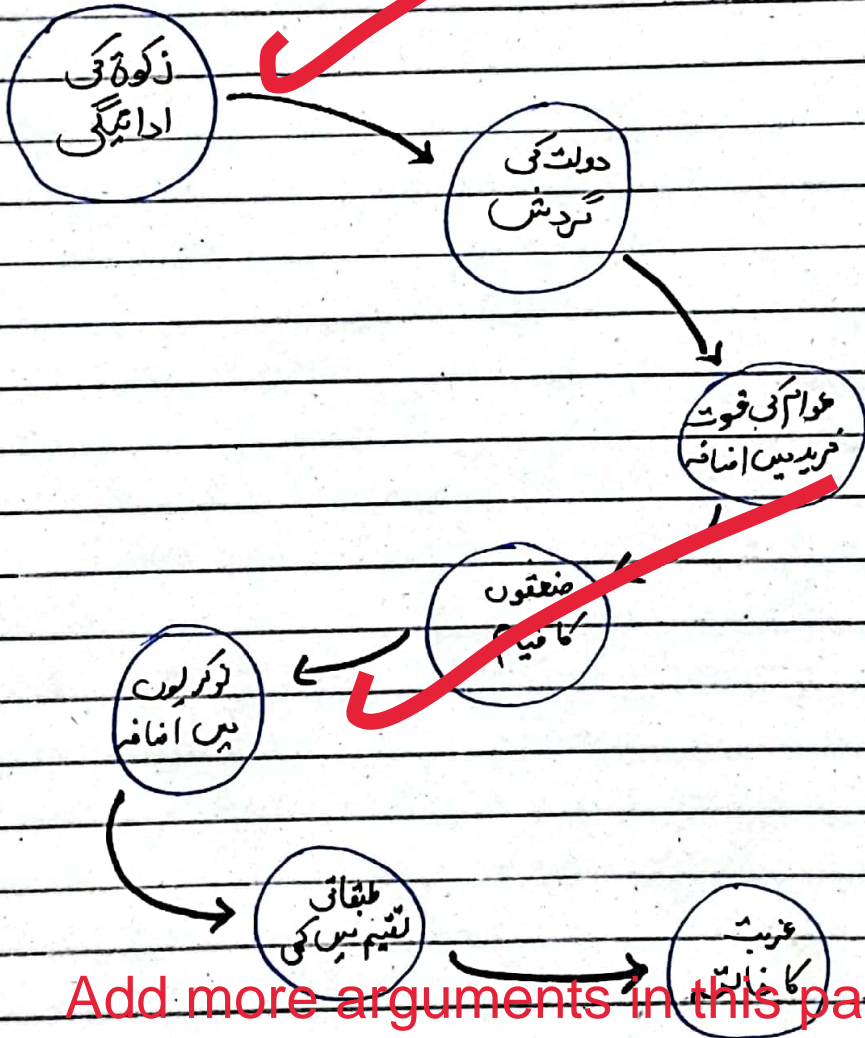 زکوٰۃ کی
ادائیگی
دولت کی
گردش
عوام کی قوت
خرید میں اضافہ
صنعتوں
کا قیام
نوکریوں
میں اضافہ
طبقاتی
تقسیم میں کمی
غربت
کا خاتمہ
Add more arguments in this pa